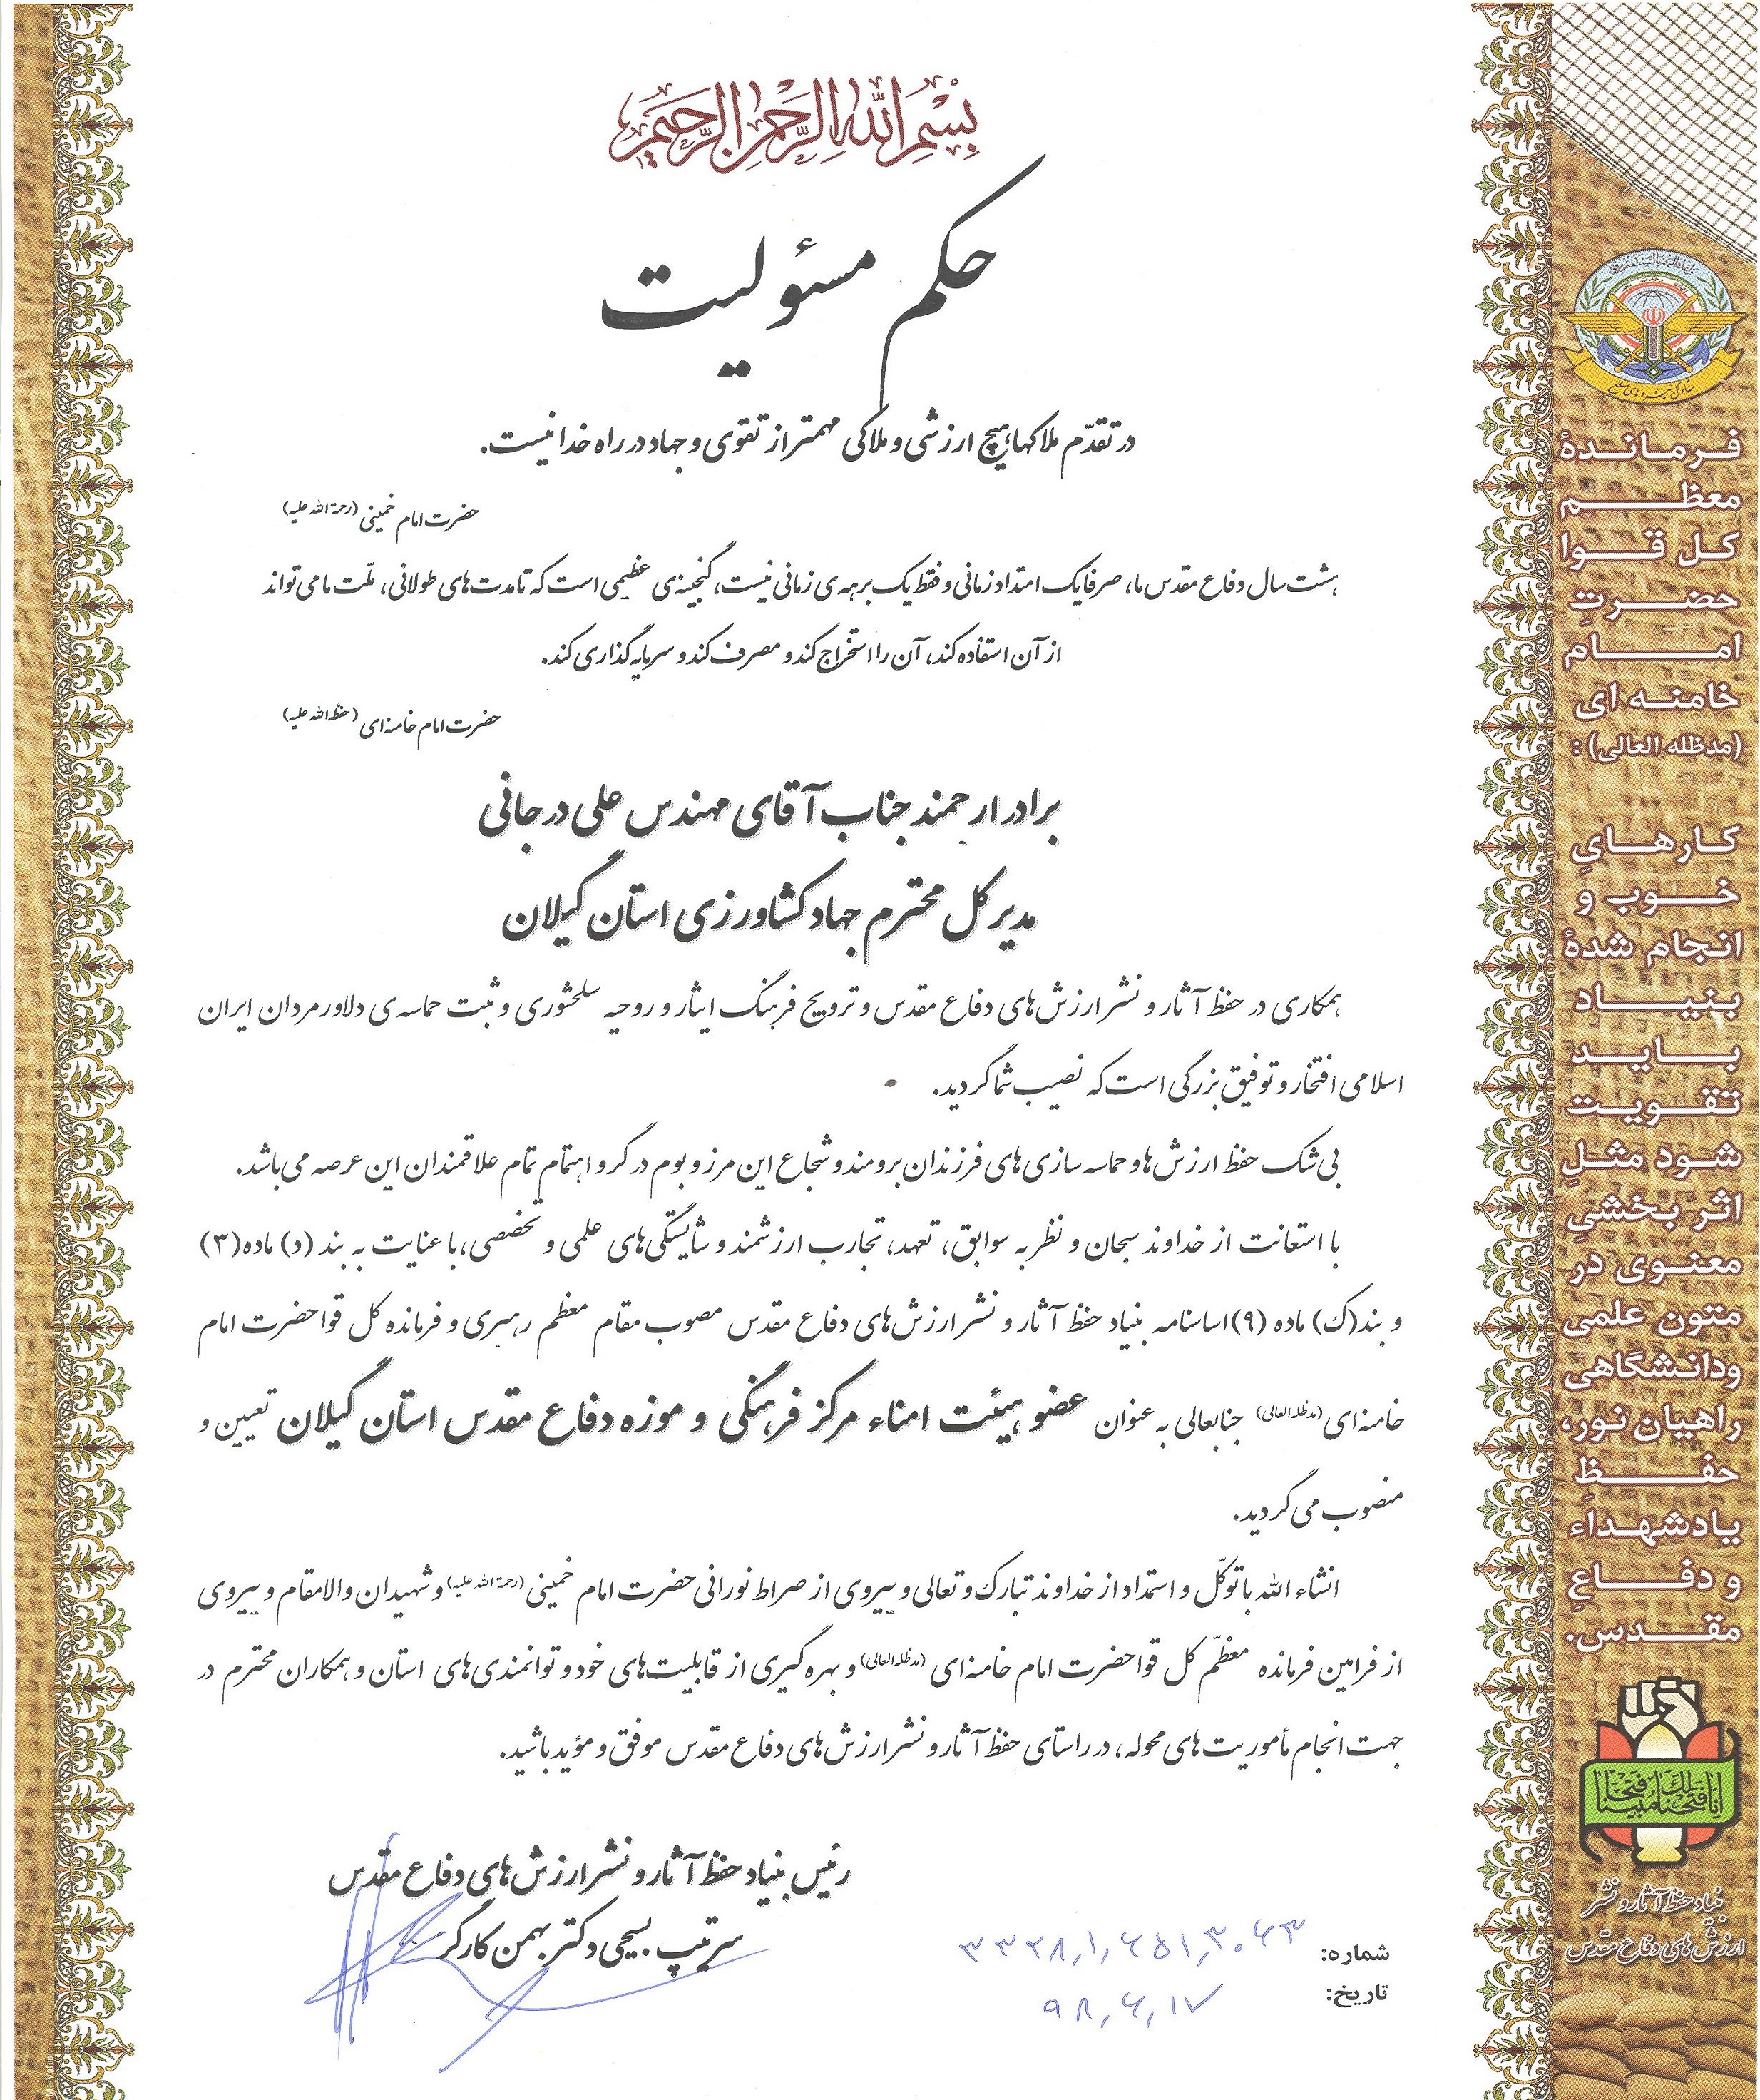 بسم الله الرحمن الرحیم
حکم مسئولیت
در تقدّم ملاکها، هیچ ارزشی و ملاکی مهمتر از تقوی و جهاد در راه خدا نیست.
حضرت امام خمینی (رحمة الله علیه)
هشت سال دفاع مقدس ما، صرفا یک امتداد زمانی و فقط یک برهه‌ی زمانی نیست، گنجینه‌ی عظیمی است که تا مدت‌های طولانی، ملّت ما می‌تواند
از آن استفاده کند، آن را استخراج کند و مصرف کند و سرمایه گذاری کند.
حضرت امام خامنه‌ای (حفظه الله علیه)
برادر ارجمند جناب آقای مهندس علی درجانی
مدیر کل محترم جهاد کشاورزی استان گیلان
همکاری در حفظ آثار و نشر ارزش‌های دفاع مقدس و ترویج فرهنگ ایثار و روحیه سلحشوری و ثبت حماسه‌ی دلاورمردان ایران
اسلامی افتخار و توفیق بزرگی است که نصیب شما گردید.
بی شک حفظ ارزش‌ها و حماسه سازی های فرزندان برومند و شجاع این مرز و بوم در گرو اهتمام تمام علاقمندان این عرصه می باشد.
با استعانت از خداوند سبحان و نظر به سوابق، تعهد، تجارب ارزشمند و شایستگی‌های علمی و تخصصی، با عنایت به بند (د) ماده (۳)
و بند (ک) ماده (۹) اساسنامه بنیاد حفظ آثار و نشر ارزش‌های دفاع مقدس مصوب مقام معظم رهبری و فرمانده کل قوا حضرت امام
خامنه‌ای (مدظله العالی) جنابعالی به عنوان عضو هیئت امناء مرکز فرهنگی و موزه دفاع مقدس استان گیلان تعیین و
منصوب می گردید.
انشاء الله با توکّل و استمداد از خداوند تبارک و تعالی و پیروی از صراط نورانی حضرت امام خمینی (رحمة الله علیه) و شهیدان والامقام و پیروی
از فرامین فرمانده معظّم کل قوا حضرت امام خامنه‌ای (مدظله العالی) و بهره گیری از قابلیت‌های خود و توانمندی‌های استان و همکاران محترم در
جهت انجام مأموریت‌های محوله، در راستای حفظ آثار و نشر ارزش‌های دفاع مقدس موفق و مؤید باشید.
رئیس بنیاد حفظ آثار و نشر ارزش‌های دفاع مقدس
سرتیپ بسیجی دکتر بهمن کارگر
شماره: ۳۳۲۸,۱,۶۵۱,۳۰۶۳
تاریخ: ۹۸,۶,۱۷
ستاد کل نیروهای مسلح
فرماندهٔ
معظم
کل قوا
حضرتِ
امام
خامنه ای
(مدظله العالی):
کارهایِ
خوب و
انجام شدهٔ
بنیاد
باید
تقویت
شود مثلِ
اثر بخشیِ
معنوی در
متون علمی
ودانشگاهی
راهیان نور،
حفظِ
یادشهداء
و دفاعِ
مقدس.
انا فتحنا لک فتحا مبینا
بنیاد حفظ آثار و نشر
ارزش های دفاع مقدس